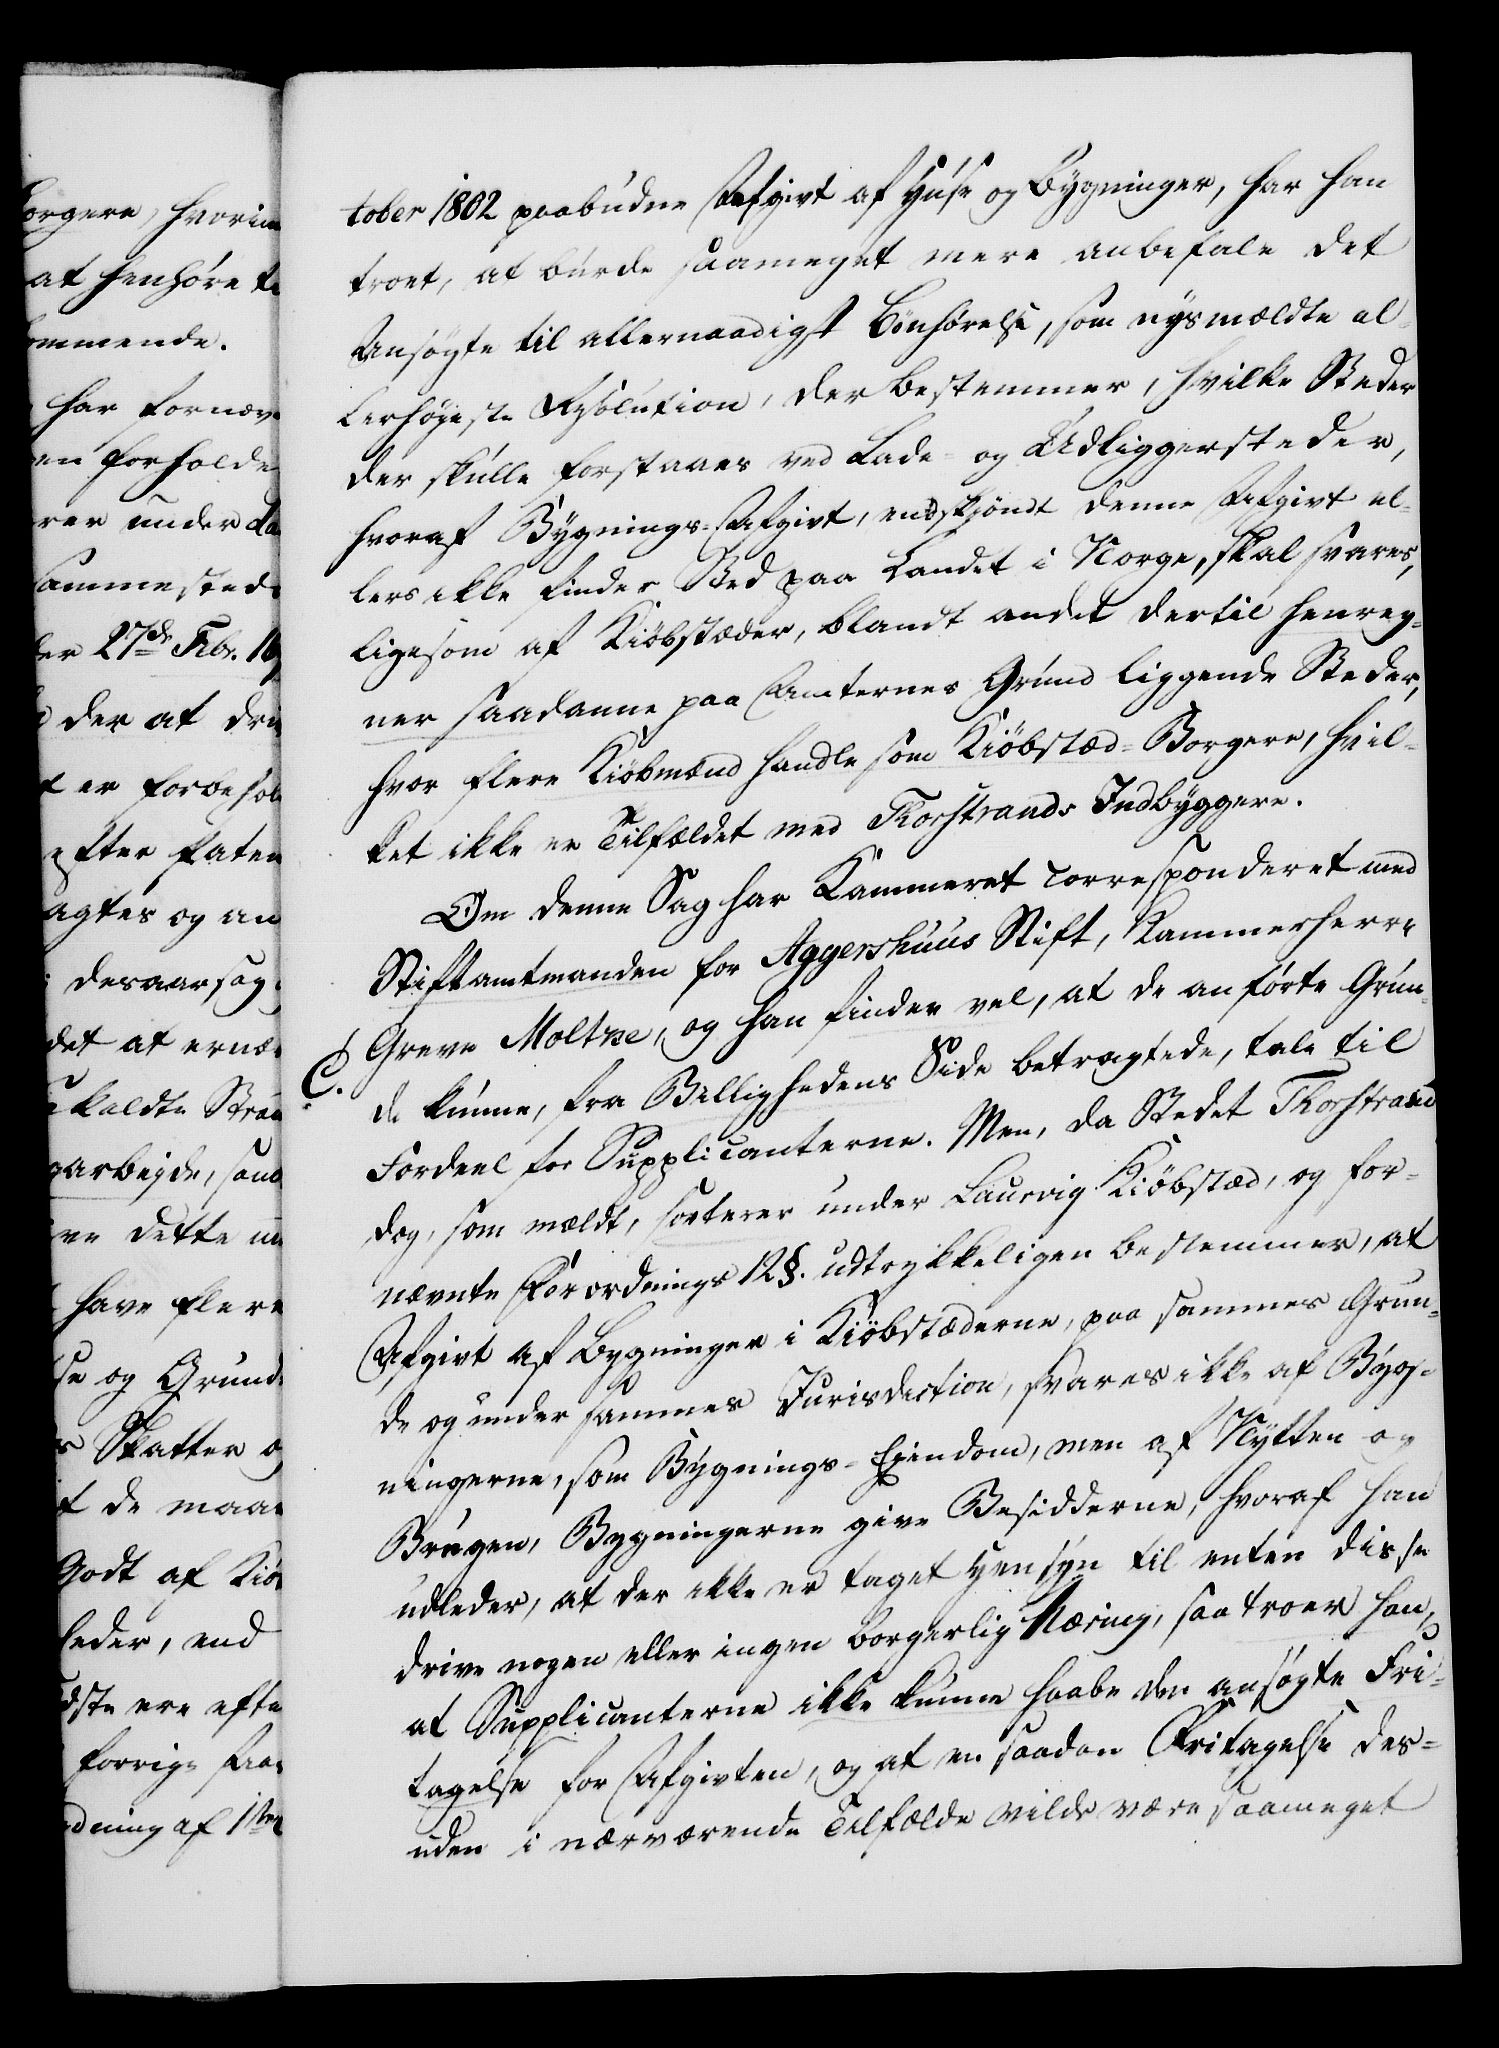 orgere, hvorim
at henhöre t
ommende.
har fornæv
en forholde
rer under La
sammesteds
der 27de Febr. 16
der at dri
t er forbehol
efter Paten
agtes og an
desaarsag
det at ernæ
kaldte Stran
garbejde, som
ve dette un
have flere
se og Grund
r Skatter og
t de maae
Godt af Kiö
steder, end
dste ere efte
forrige Aar
dning af 1ste
tober 1802 paabudne Afgivt af Huse og Bygninger, har han
troet, at burde saameget mere anbefale det
Ansögte til allernaadigst Bönhörelse, som nysmældte al-
lerhöjeste Resolution, der bestemmer, hvilke Steder
der skulle forstaaes ved Lade- og Udliggersteder,
hvoraf Bygnings-Afgivt, endskjöndt denne Afgivt el-
lers ikke finder Sted paa Landet i Norge, skal svares,
ligesom af Kiöbstæder, blandt andet dertil henreg-
ner saadanne paa Amternes Grund liggende Steder,
hvor flere Kiöbmænd handle som Kiöbstæd-Borgere, hvil-
ket ikke er Tilfældet med Thorstrands Indbyggere.
Om denne Sag har Kammeret correspondéret med
Stiftamtmanden for Aggershuus Stift, Kammerherre
Greve Moltke, og han finder vel, at de anförte Grun-
C.
de kunne, fra Billighedens Side betragtede, tale til
Fordeel for Supplicanterne. Men, da Stedet Thorstrand
dog, som mældt, sorterer under Laurvig Kiöbstæd, og for-
nævnte Forordnings 12 §. udtrykkeligen bestemmer, at
Afgivt af Bygninger i Kiöbstæderne, paa sammes Grun-
de og under sammes Jurisdiction, svares ikke af Byg-
ningerne, som Bygnings-Ejendom, men af Nytten og
Brugen, Bygningerne give Besidderne, hvoraf han
udleder, at der ikke er taget Hensyn til enten disse
drive nogen eller ingen borgerlig Næring, saa troer han,
at Supplicanterne ikke kunne haabe den ansögte Fri-
tagelse for Afgivten, og at en saadan Fritagelse des-
uden i nærværende Tilfælde vilde være saameget